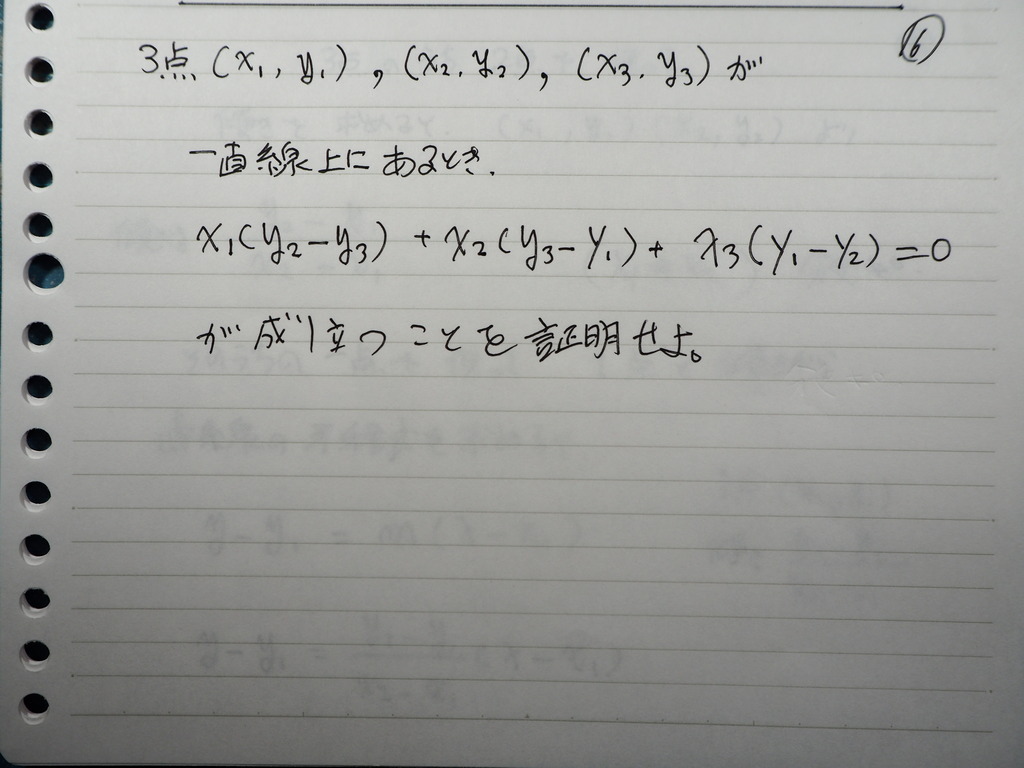 ⑥
3点 (x₁, y₁), (x₂, y₂), (x₃, y₃) が
一直線上にあるとき、
x₁(y₂−y₃) + x₂(y₃−y₁) + x₃(y₁−y₂) = 0
が成り立つことを証明せよ。